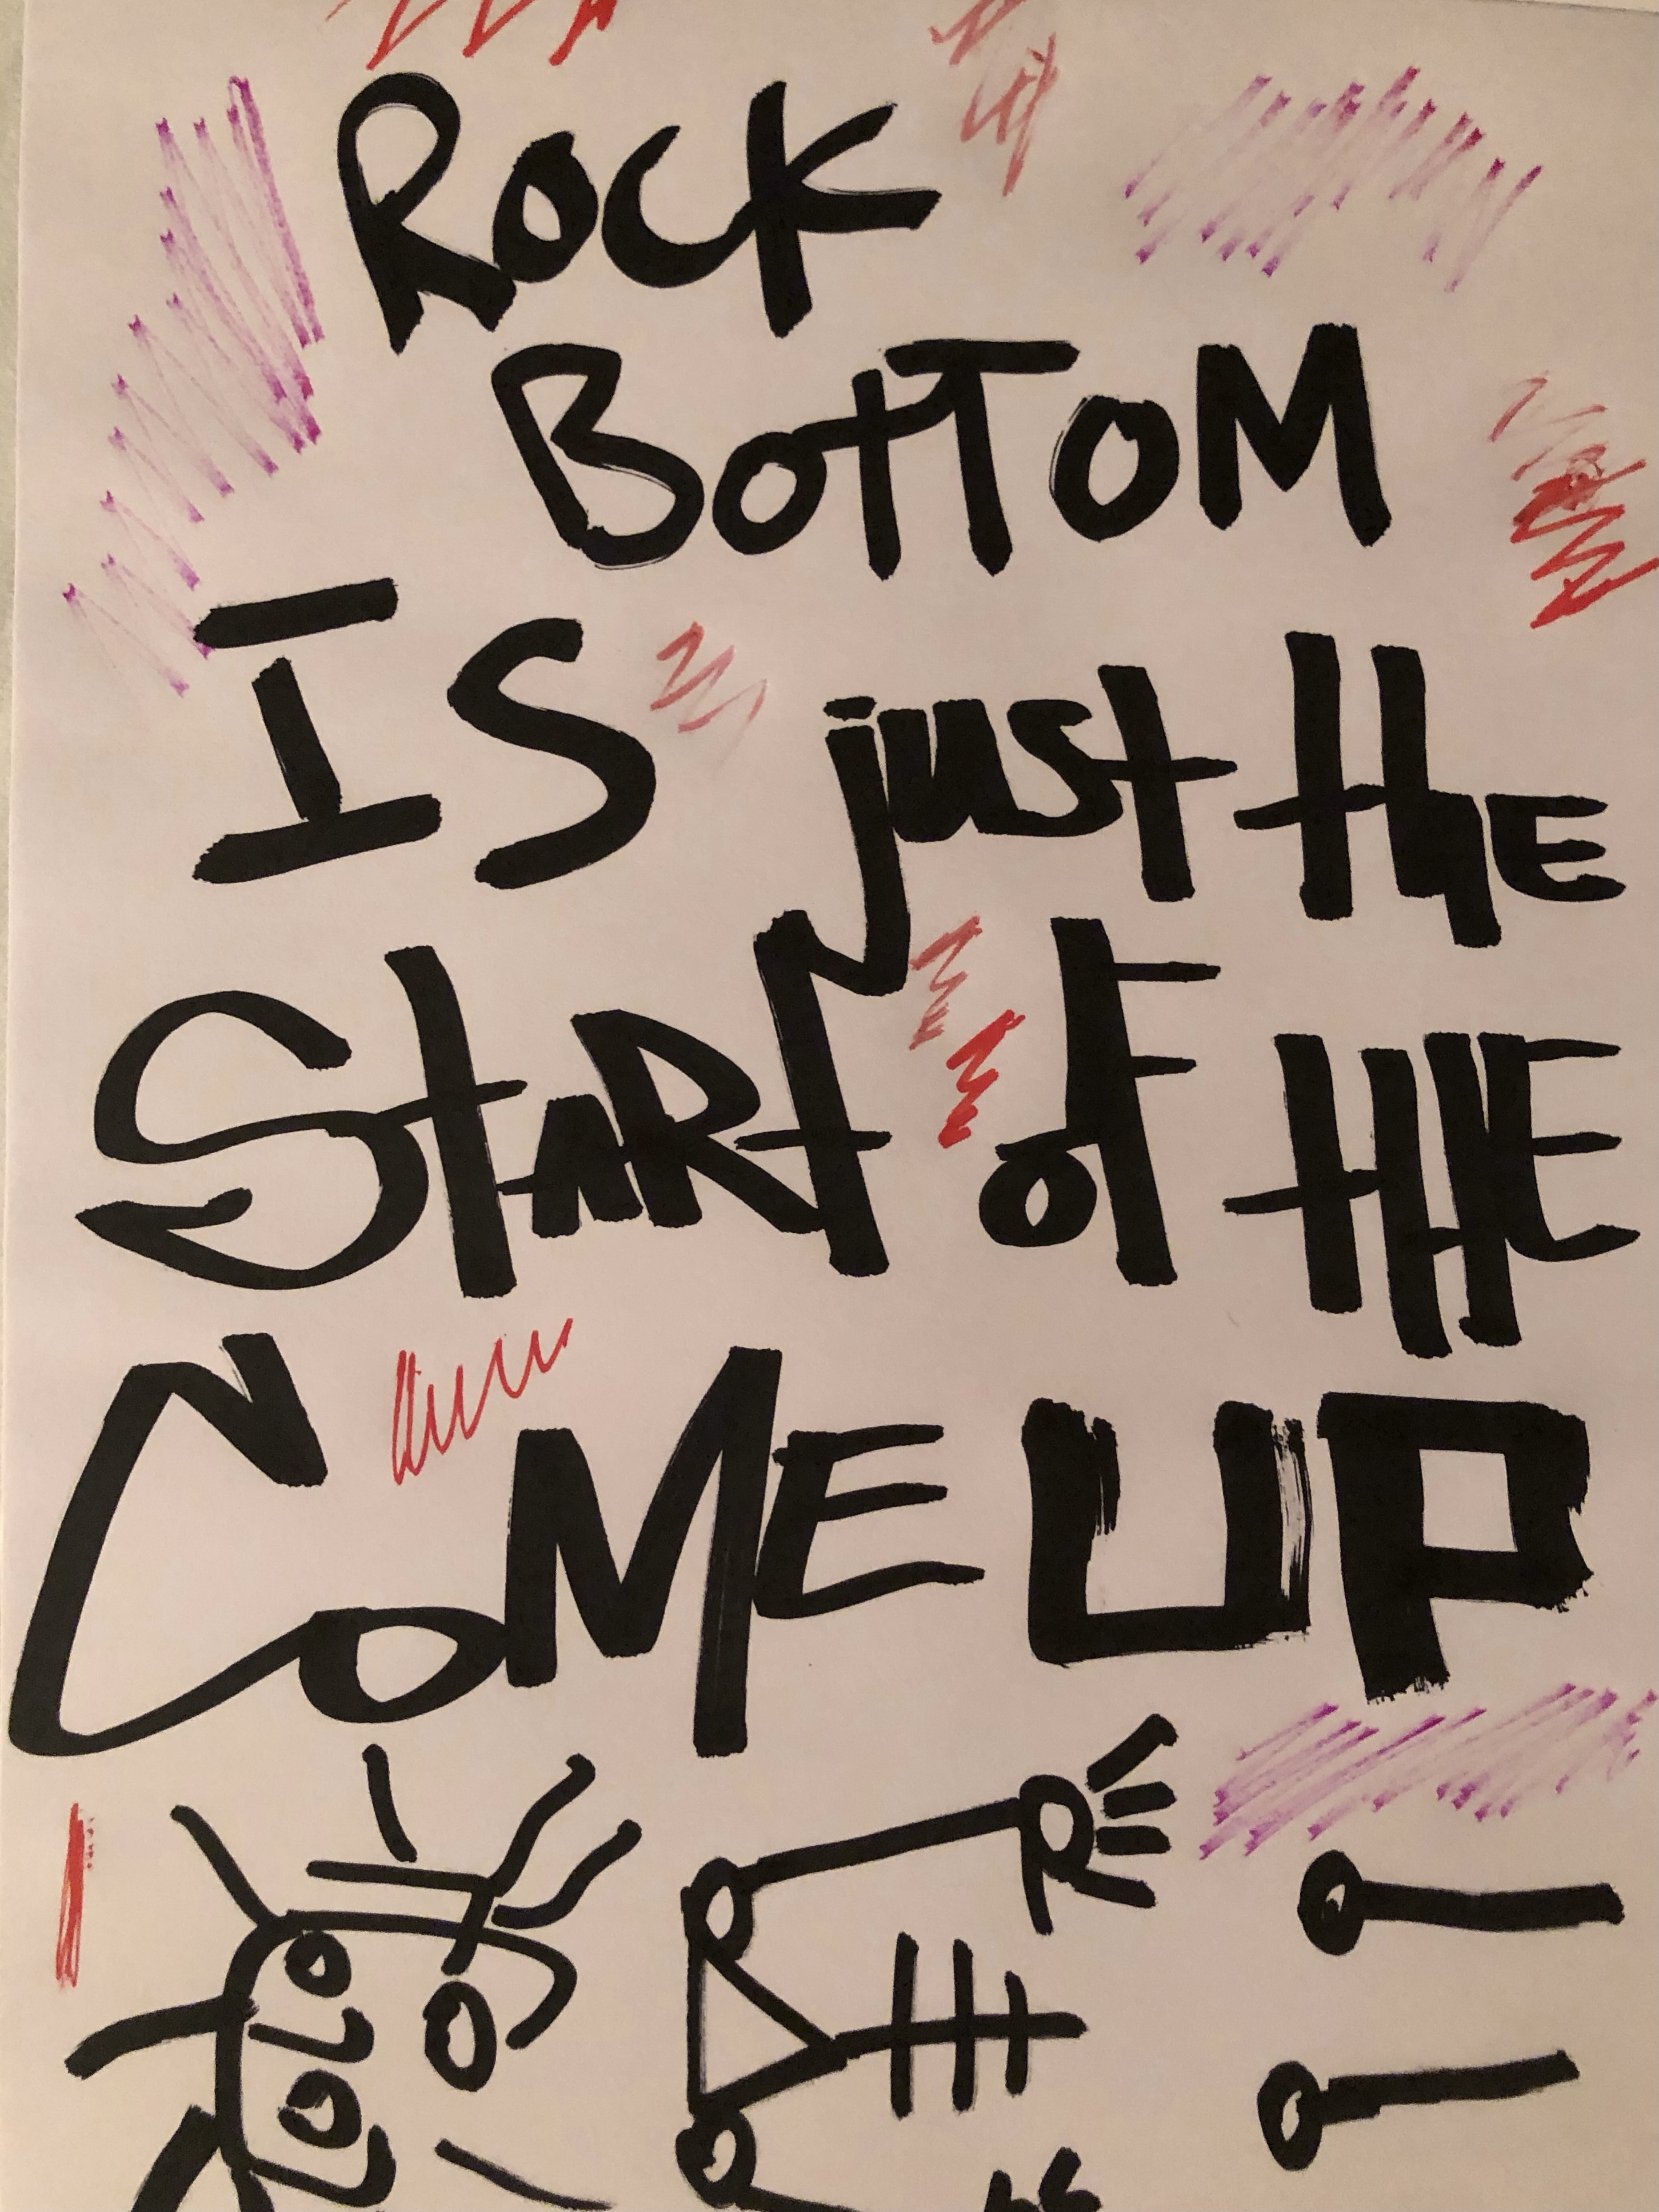 Rock
BottoM
IS just the
StaRt of tHE
CoME UP